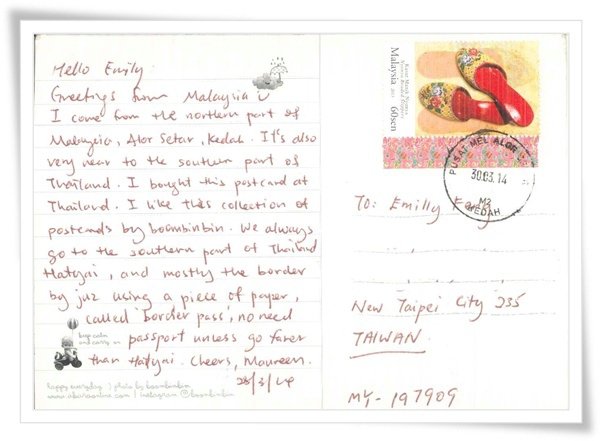 Hello Emily
Greetings from Malaysia
I come from the northern part of
Malaysia, Alor Setar, Kedah. It's also
very near to the southern part of
Thailand. I bought this postcard at
Thailand. I like this collection of
postcards by boombinbin. We always
go to the southern part of Thailand
Hatyai, and mostly the border
by juz using a piece of paper,
called 'border pass', no need
passport unless go farer
than Hatyai. Cheers, Maureen.
28/3/14
keep calm
and carry on
happy everyday | photo by boombinbin
www.aboriaonline.com | instagram @boombinbin
Malaysia 2013
60sen
PUSAT MEL ALOR
30.03.14
M2
KEDAH
To: Emilly
New Taipei City 235
TAIWAN.
MY-197909